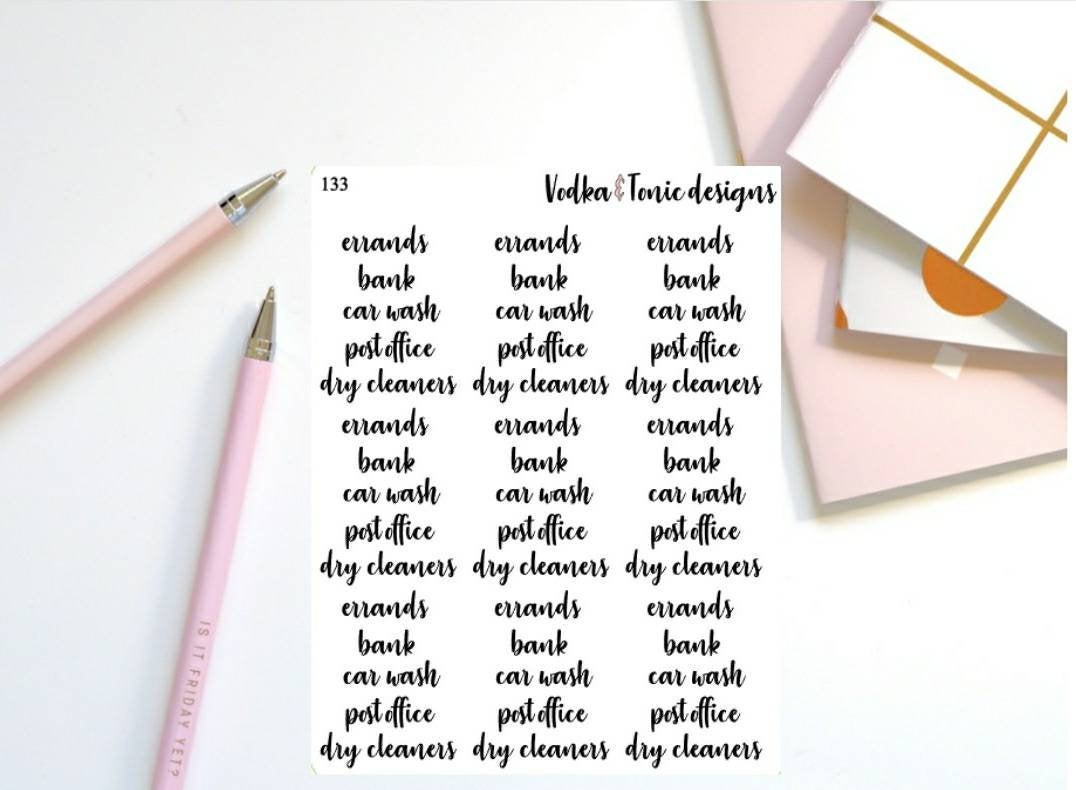 133 Vodka & Tonic designs
errands errands errands
bank bank bank
car wash car wash car wash
post office post office post office
dry cleaners dry cleaners dry cleaners
errands errands errands
bank bank bank
car wash car wash car wash
post office post office post office
dry cleaners dry cleaners dry cleaners
errands errands errands
bank bank bank
car wash car wash car wash
post office post office post office
dry cleaners dry cleaners dry cleaners
IS IT FRIDAY YET?